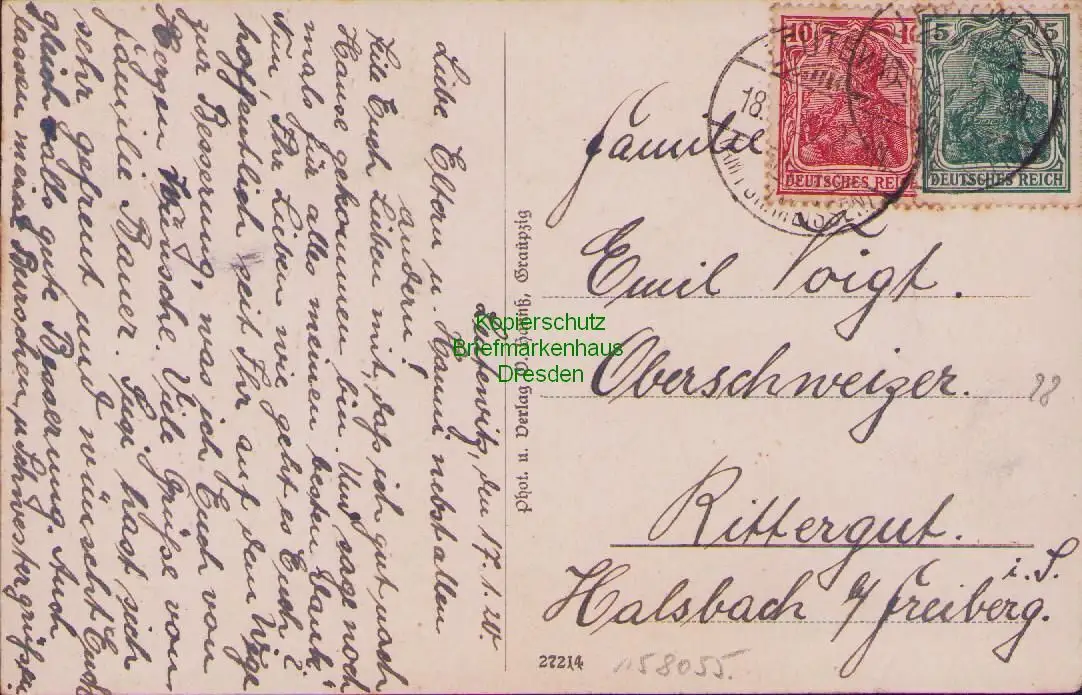 Leutewitz, den 17.1.20.
Liebe Eltern u. Hanni nebst allen
andern!
Teile Euch Lieben mit, daß ich gut nach
Hause gekommen bin. Und sage noch
mals für alles meinen besten Dank!
Nun, Ihr Lieben wie geht es Euch?
hoffentlich seit Ihr auf dem Wege
zur Besserung, was ich Euch von
Herzen Wünsche. Viele Grüße von
Familie Bauer. Sie hast sich
sehr gefreut und wünscht Euch
gleichfalls gute Besserung. Auch
lassen meine Burschen u. Schwester grüßen
Phot. u. Verlag Graupzig
27214
158055.
Familie
Emil Voigt.
Oberschweizer.
28
Rittergut.
Halsbach b/Freiberg.
i. S.
10 10
DEUTSCHES REICH
5 5
DEUTSCHES REICH
18.
Kopierschutz
Briefmarkenhaus
Dresden